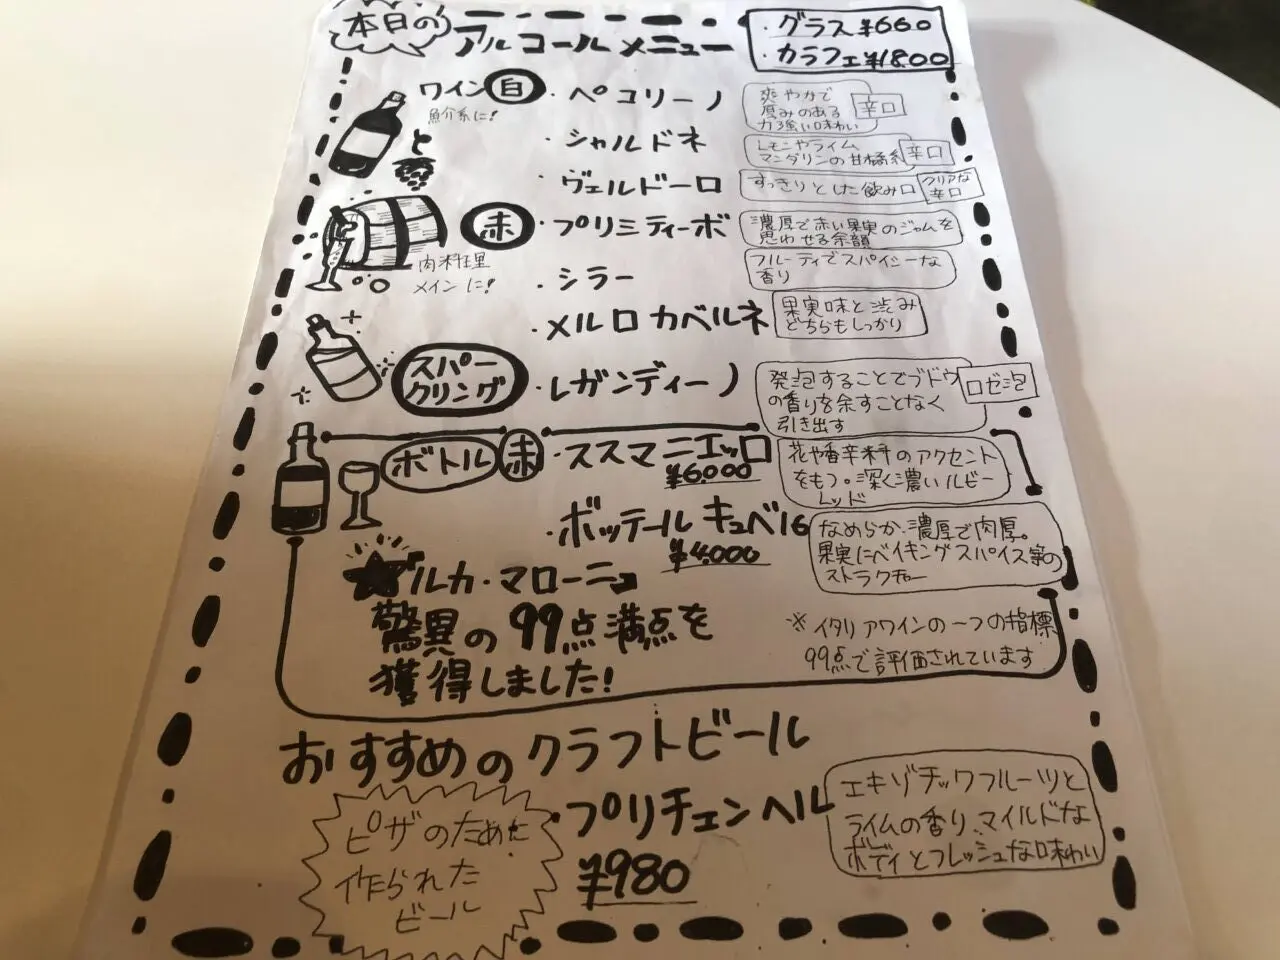 本日の
アルコールメニュー
・グラス¥660
・カラフェ¥1800
ワイン白
魚介系に!
と
・ペコリーノ
爽やかで
厚みのある
力強い味わい
辛口
・シャルドネ
レモンやライム
マンダリンの甘橘系
辛口
・ヴェルドーロ
すっきりとした飲み口
クリアな
辛口
赤
肉料理
メインに!
・プリミティーボ
濃厚で赤い果実のジャムを
思わせる余韻
・シラー
フルーティでスパイシーな
香り
・メルロ カベルネ
果実味と渋み
どちらもしっかり
スパー
クリング
・レガンディーノ
発泡することでブドウ
の香りを余すことなく
引き出す
ロゼ泡
ボトル赤
・ススマニエッロ
¥6.000
花や香辛料のアクセント
をもつ。深く濃いルビー
レッド
・ボッテール キュベ16
¥4.000
なめらか、濃厚で肉厚。
果実にベイキングスパイス系の
ストラクチャー
★ルカ・マローニ
驚異の99点満点を
獲得しました!
※イタリアワインの一つの指標
99点で評価されています
おすすめのクラフトビール
ピザのために
作られた
ビール
・プリチェンヘル
¥980
エキゾチックフルーツと
ライムの香り、マイルドな
ボディとフレッシュな味わい